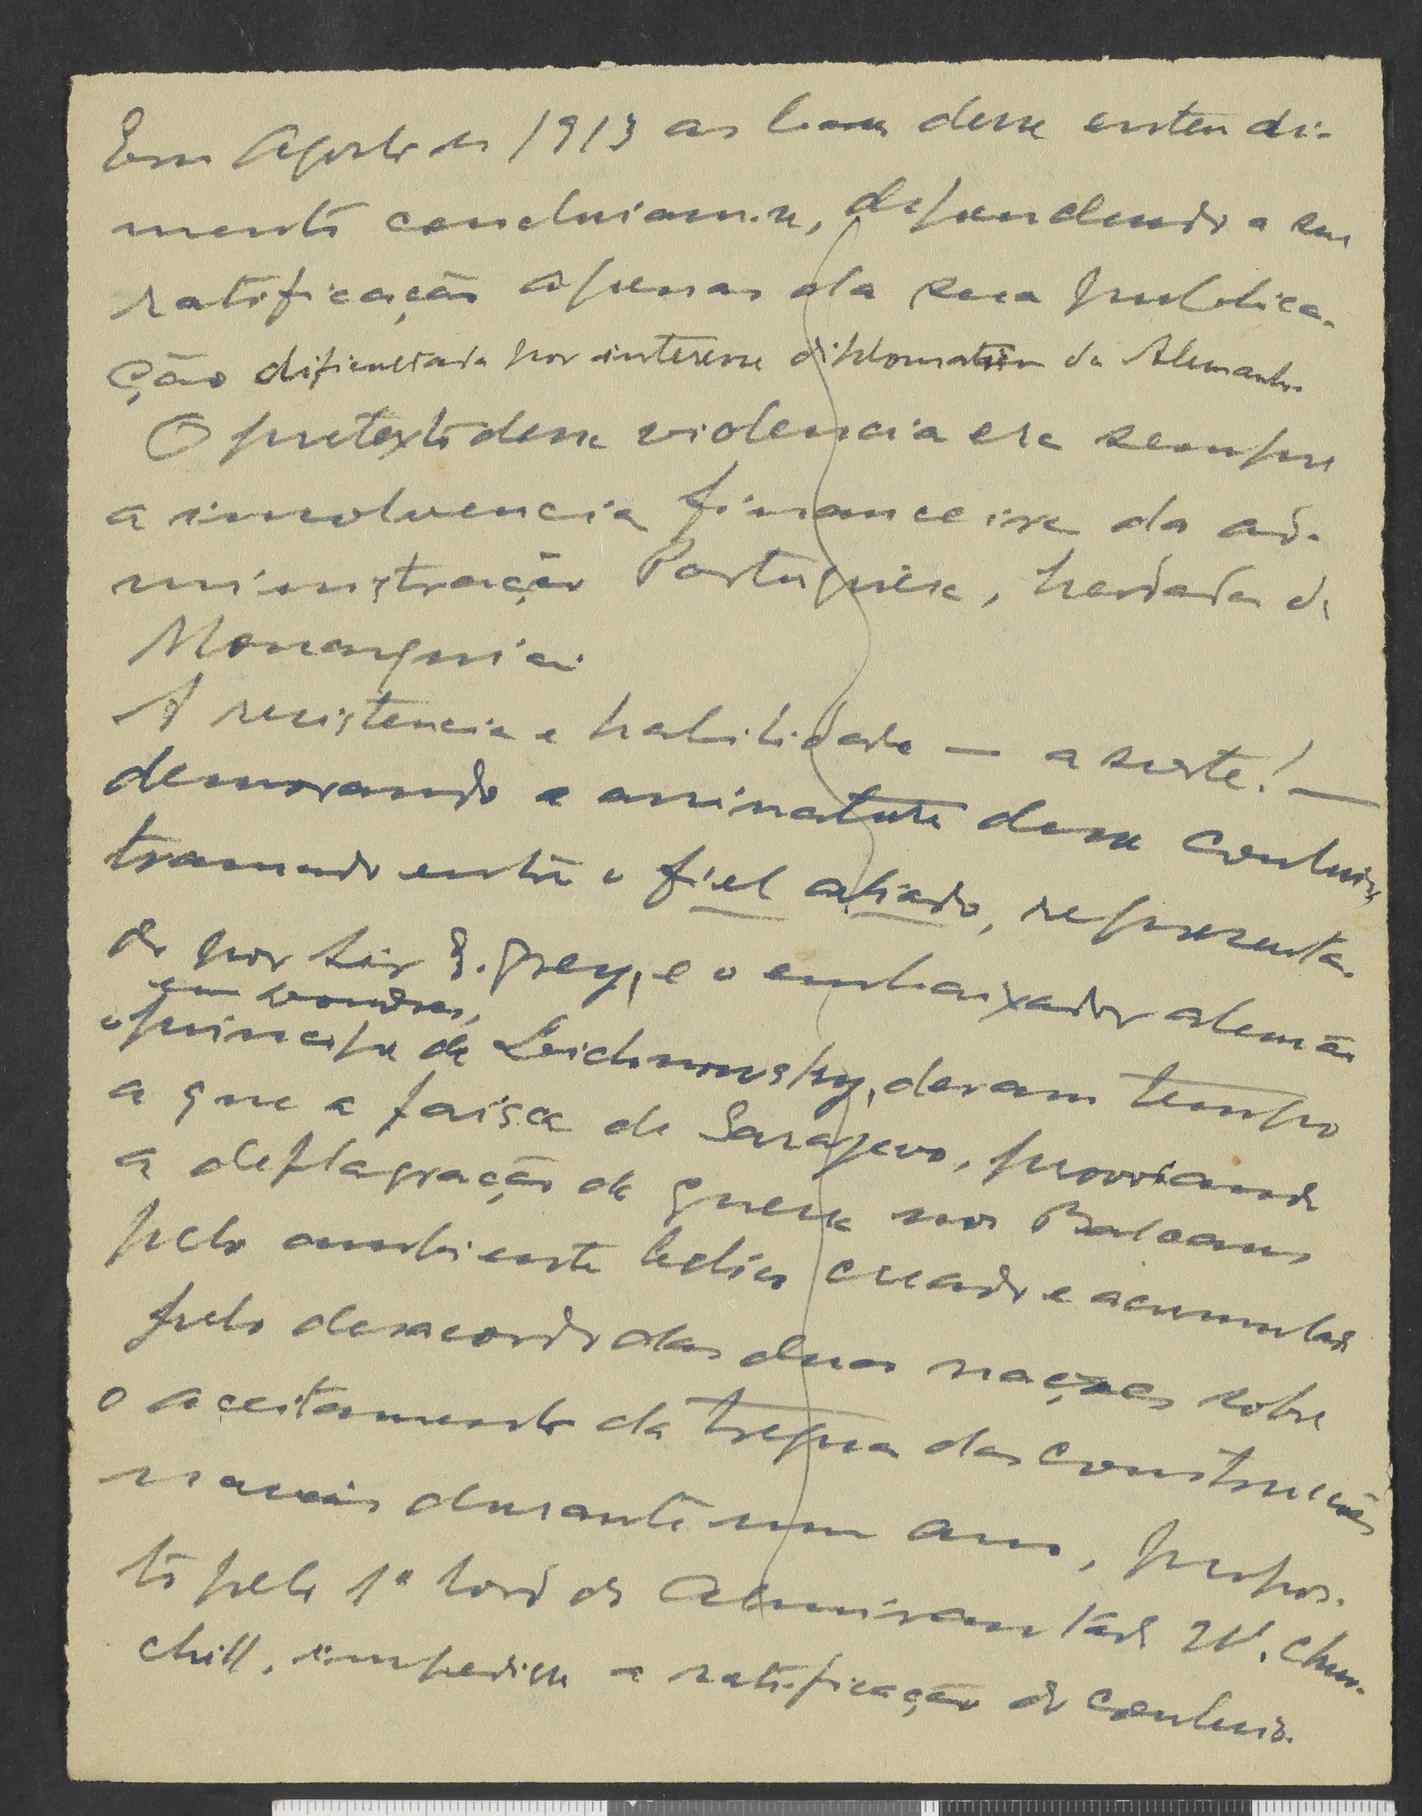 Em Agosto de 1913 as bases desse entendi-
mento concluiam-se, dependendo a sua
ratificação apenas da sua publica-
ção dificultada por interesse diplomatico da Alemanha.
O pretexto dessa violencia era sempre
a insolvencia financeira da ad-
ministração Portuguesa, herdada da
Monarquia
A resistencia e habilidade — a sorte! —
demorando a assinatura desse conluio,
tramado entre o fiel aliado, representa-
do por Sir E. Grey, e o embaixador alemão
em Londres,
o principe de Leichnowsky, deram tempo
a que a faisca de Sarajevo, provocando
a deflagração da guerra nos Balcans
pelo ambiente belico creado e acumulado
pelo desacordo das duas nações sobre
o aceitamento da tregua das construções
navais durante um ano, propos-
to pelo 1º Lord do Almirantado W. Chur-
chill, impedisse a ratificação do conluio.